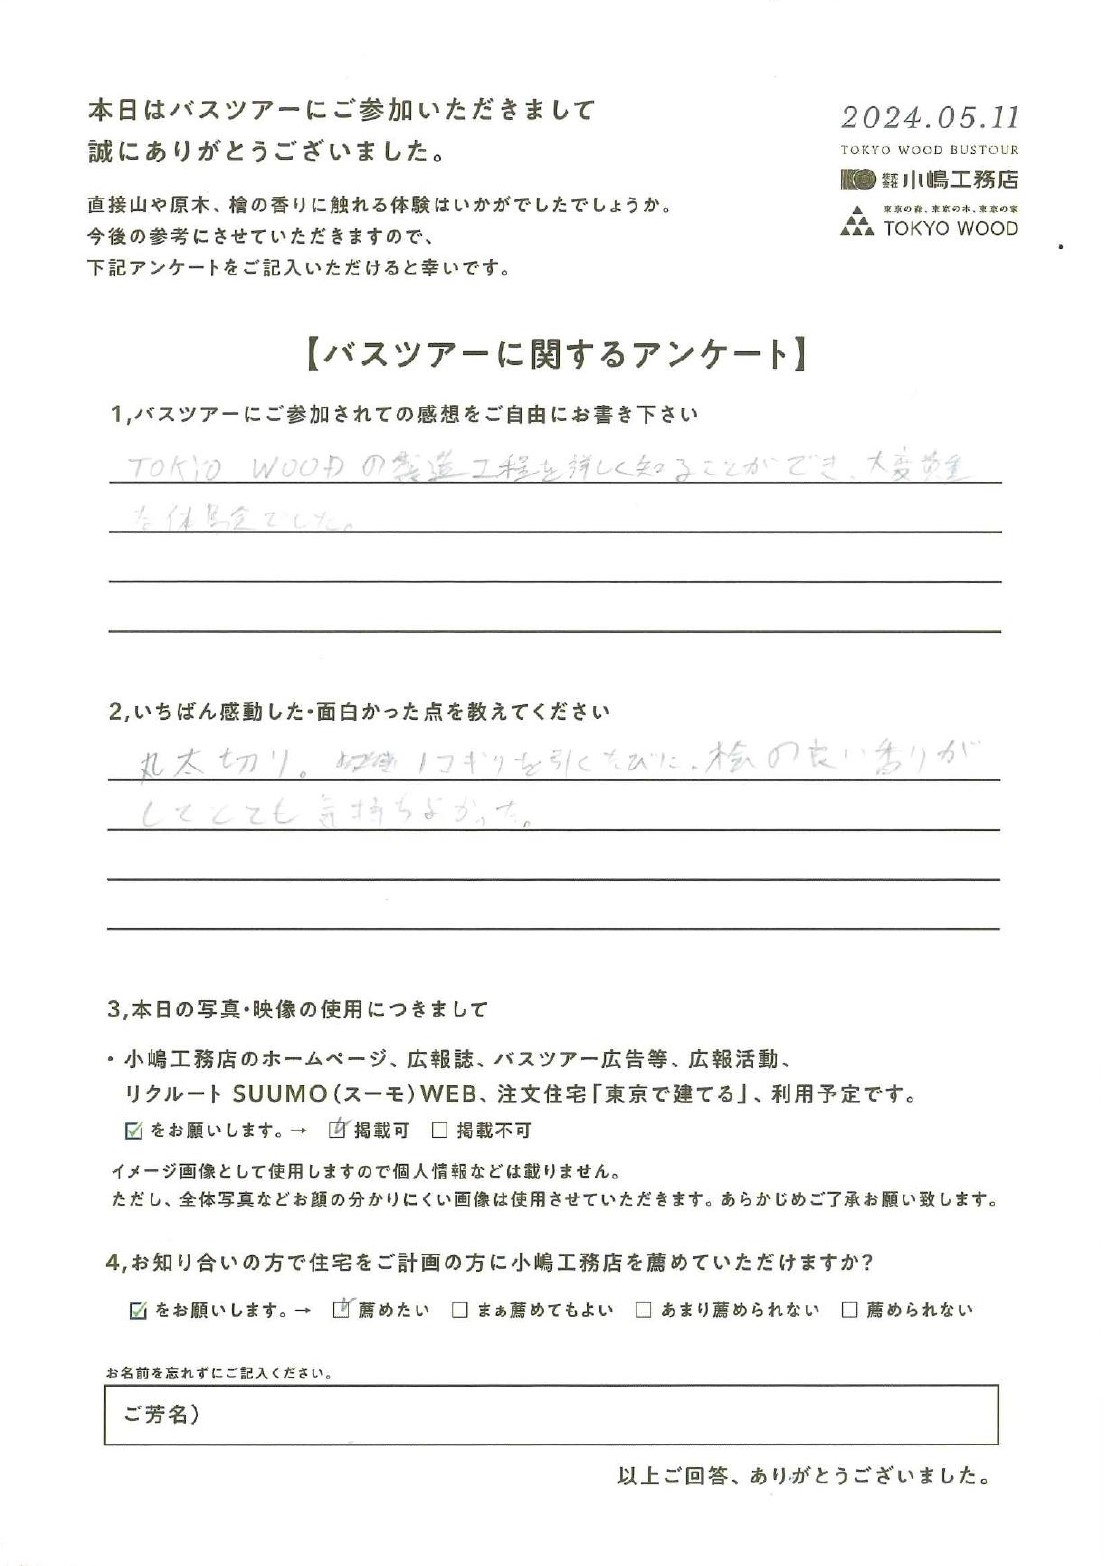 本日はバスツアーにご参加いただきまして
誠にありがとうございました。
直接山や原木、檜の香りに触れる体験はいかがでしたでしょうか。
今後の参考にさせていただきますので、
下記アンケートをご記入いただけると幸いです。
2024.05.11
TOKYO WOOD BUSTOUR
株式会社 小嶋工務店
東京の森、東京の木、東京の家
TOKYO WOOD
【バスツアーに関するアンケート】
1,バスツアーにご参加されての感想をご自由にお書き下さい
TOKYO WOODの製造工程を詳しく知ることができ、大変貴重
な体験でした。
2,いちばん感動した・面白かった点を教えてください
丸太切り。 ノコギリを引くたびに、檜の良い香りが
してとても気持ちよかった。
3,本日の写真・映像の使用につきまして
・小嶋工務店のホームページ、広報誌、バスツアー広告等、広報活動、
リクルート SUUMO(スーモ)WEB、注文住宅「東京で建てる」、利用予定です。
☑をお願いします。→ ☑掲載可 □掲載不可
イメージ画像として使用しますので個人情報などは載りません。
ただし、全体写真などお顔の分かりにくい画像は使用させていただきます。あらかじめご了承お願い致します。
4,お知り合いの方で住宅をご計画の方に小嶋工務店を薦めていただけますか?
☑をお願いします。→ ☑薦めたい □まぁ薦めてもよい □あまり薦められない □薦められない
お名前を忘れずにご記入ください。
ご芳名)
以上ご回答、ありがとうございました。